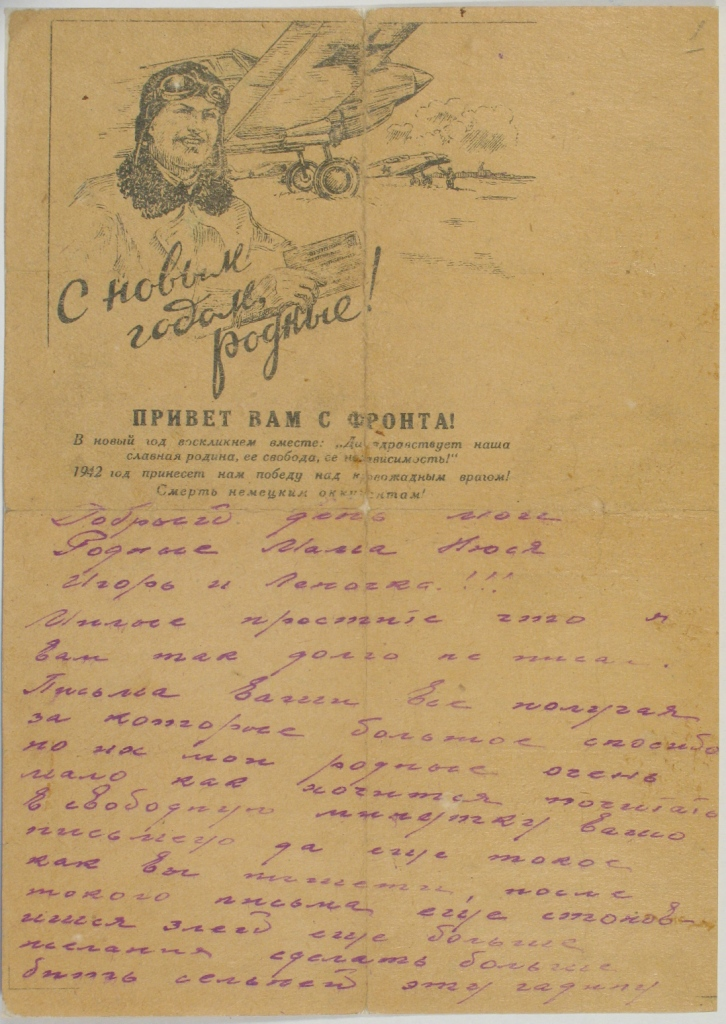 С новым
годом,
родные!
ПРИВЕТ ВАМ С ФРОНТА!
В новый год воскликнем вместе: „Да здравствует наша
славная родина, ее свобода, ее независимость!"
1942 год принесет нам победу над кровожадным врагом!
Смерть немецким оккупантам!
Добрый день мои
Родные Мама Нюся
Игорь и Леночка.!!!
Милые простите что я
Вам так долго не писал.
Письма Ваши все получая
за которые большое спосибо
но их мои родные очень
мало как хочится почитать
в свободную минутку Вашо
письмецо да еще такое
как Вы пишети, после
такого письма еще станов-
ишся злей еще больше
желания сделать больше
бить сельней эту гадину